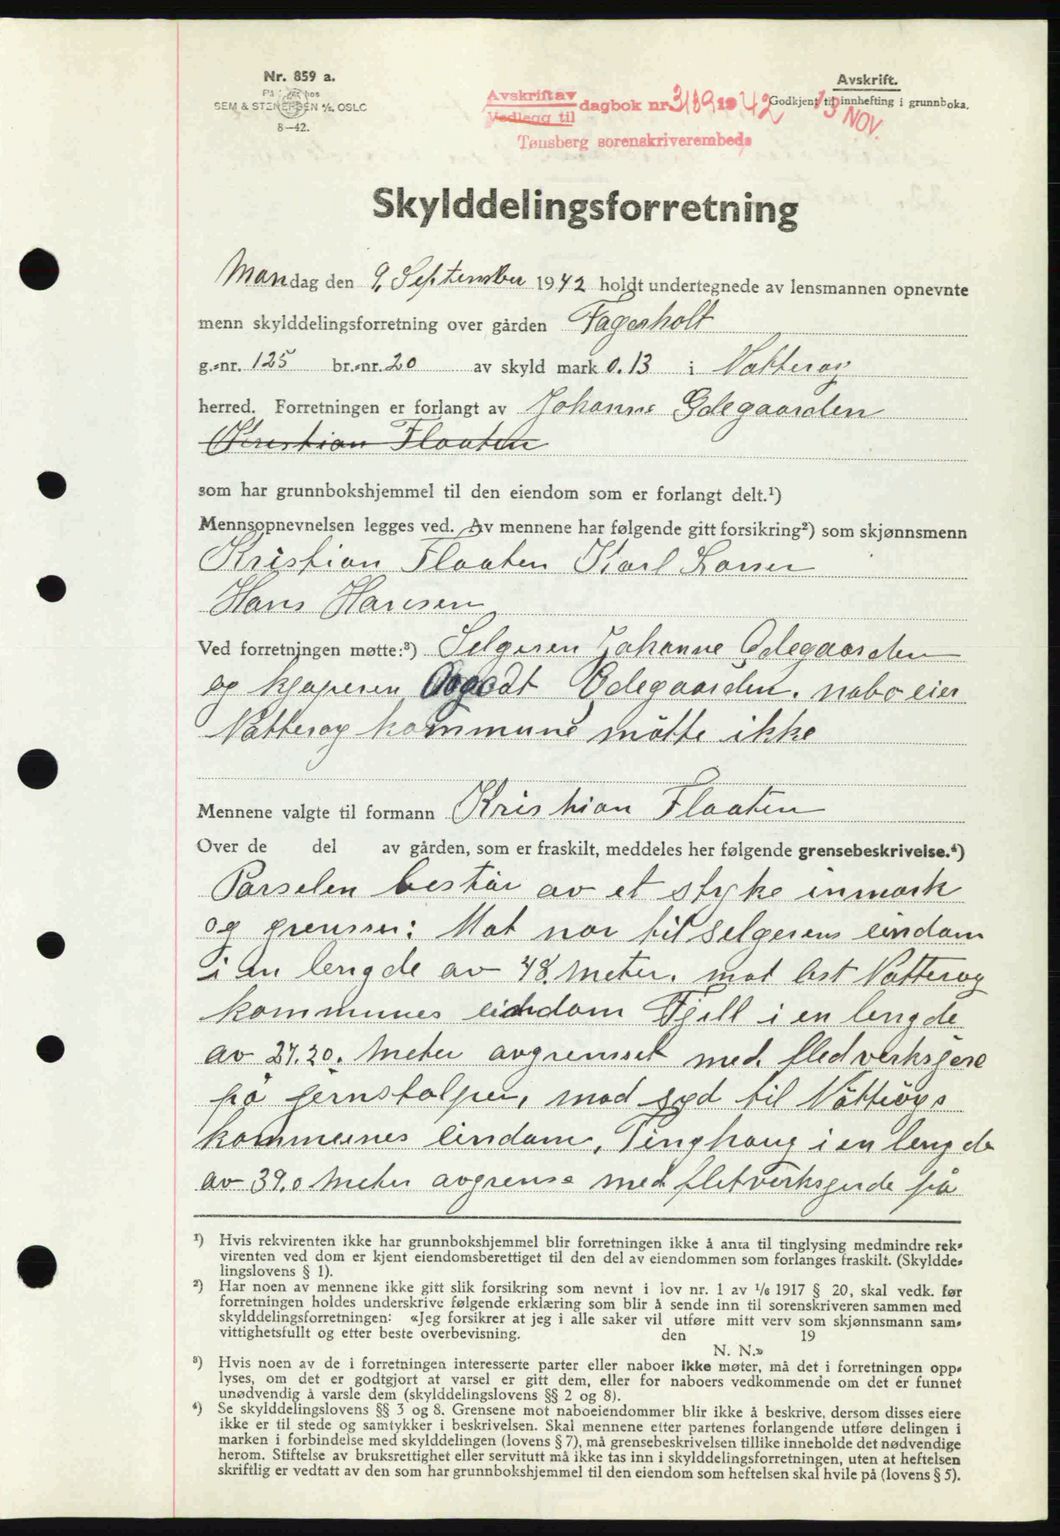 Nr. 859 a.
SEM & STENERSEN A/S, OSLO
8—42.
Avskrift av
Vedlegg til
dagbok nr. 3189 1942
Tønsberg sorenskriverembede
Avskrift.
Godkjent til innhefting i grunnboka.
13 NOV.
Skylddelingsforretning
Mandag den 9. September 1942 holdt undertegnede av lensmannen opnevnte
menn skylddelingsforretning over gården Fagerholt
g.-nr. 125 br.-nr. 20 av skyld mark 0.13 i Nøtterøy
herred. Forretningen er forlangt av Johanne Ødegaarden
Kristian Flaaten
som har grunnbokshjemmel til den eiendom som er forlangt delt.¹)
Mennsopnevnelsen legges ved. Av mennene har følgende gitt forsikring²) som skjønnsmenn
Kristian Flaaten Karl Larsen
Hans Hansen
Ved forretningen møtte:³) Selgeren Johanne Ødegaarden
og kjøperen Ødegaarden. nabo eier
Nøtterøy kommune møtte ikke
Mennene valgte til formann Kristian Flaaten
Over de del av gården, som er fraskilt, meddeles her følgende grensebeskrivelse.⁴)
Parselen består av et styke inmark
og grenser: Mot nor til selgerens eindom
i en lengde av 48. Meter. mot øst Nøtterøy
kommunes eindom Fjell i en lengde
av 27.20. Meter avgrenset med fledverksjere
på jernstolper, mod syd til Nøttrøys
kommunes eindom, Tinghaug i en lengde
av 39.0 Meter avgrense med fletverksgjerde på
¹) Hvis rekvirenten ikke har grunnbokshjemmel blir forretningen ikke å anta til tinglysing medmindre rek-
virenten ved dom er kjent eiendomsberettiget til den del av eiendommen som forlanges fraskilt. (Skyldde-
lingslovens § 1).
²) Har noen av mennene ikke gitt slik forsikring som nevnt i lov nr. 1 av 1/6 1917 § 20, skal vedk. før
forretningen holdes underskrive følgende erklæring som blir å sende inn til sorenskriveren sammen med
skylddelingsforretningen: «Jeg forsikrer at jeg i alle saker vil utføre mitt verv som skjønnsmann sam-
vittighetsfullt og etter beste overbevisning. den 19
N. N.»
³) Hvis noen av de i forretningen interesserte parter eller naboer ikke møter, må det i forretningen opp-
lyses, om det er godtgjort at varsel er gitt dem, eller for naboers vedkommende om det er funnet
unødvendig å varsle dem (skylddelingslovens §§ 2 og 8).
⁴) Se skylddelingslovens §§ 3 og 8. Grensene mot naboeiendommer blir ikke å beskrive, dersom disses eiere
ikke er til stede og samtykker i beskrivelsen. Skal mennene etter partenes forlangende utføre delingen i
marken i forbindelse med skylddelingen (lovens § 7), må grensebeskrivelsen tillike inneholde det nødvendige
herom. Stiftelse av bruksrettighet eller servitutt må ikke tas inn i skylddelingsforretningen, uten at heftelsen
skriftlig er vedtatt av den som har grunnbokshjemmel til den eiendom som heftelsen skal hvile på (lovens § 5).